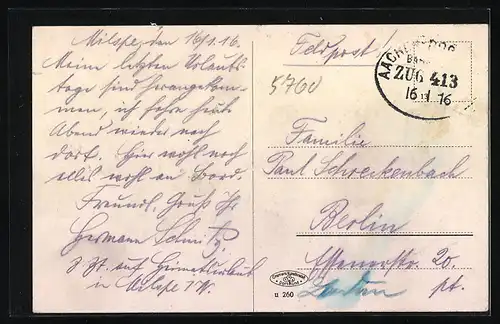 Milspe, den 16/1.16.
Meine letzten Urlaubs-
tage sind herangekom-
men, ich fahre heute
Abend wieder nach
dort. Hier wohl noch
alles wohl an Bord.
Freundl. Gruß Ihr
Hermann Schmitz,
z. Zt. auf Heimaturlaub
in Milspe i/W.
Feldpost!
5760
ZUG 413
16 1 16
Familie
Paul Schreckenbach
Berlin
Essenerstr. 20.
pt.
u 260